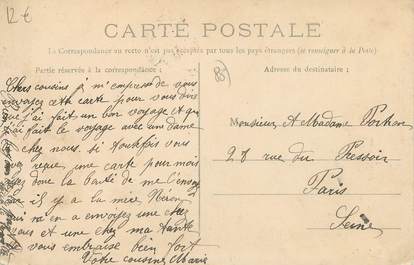 12 €
CARTE POSTALE
La Correspondance au recto n'est pas acceptée par tous les pays étrangers (se renseigner à la Poste)
Partie réservée à la correspondance :
Adresse du destinataire :
Chers cousins je m'empresse de vous
envoyez cette carte pour vous dire
que j'ai fait un bon voyage et que
j'ai fait le voyage avec une dame
de chez nous. si toutefois vous
avez reçue une carte pour moi
ayez donc la bonté de me l'envoyer
il y a la mère
qui m'en a envoyez une chez
vous et une chez ma tante
je vous embrasse bien fort
Votre cousine Marie
Monsieur et Madame
28 rue du Pressoir
Paris
Seine